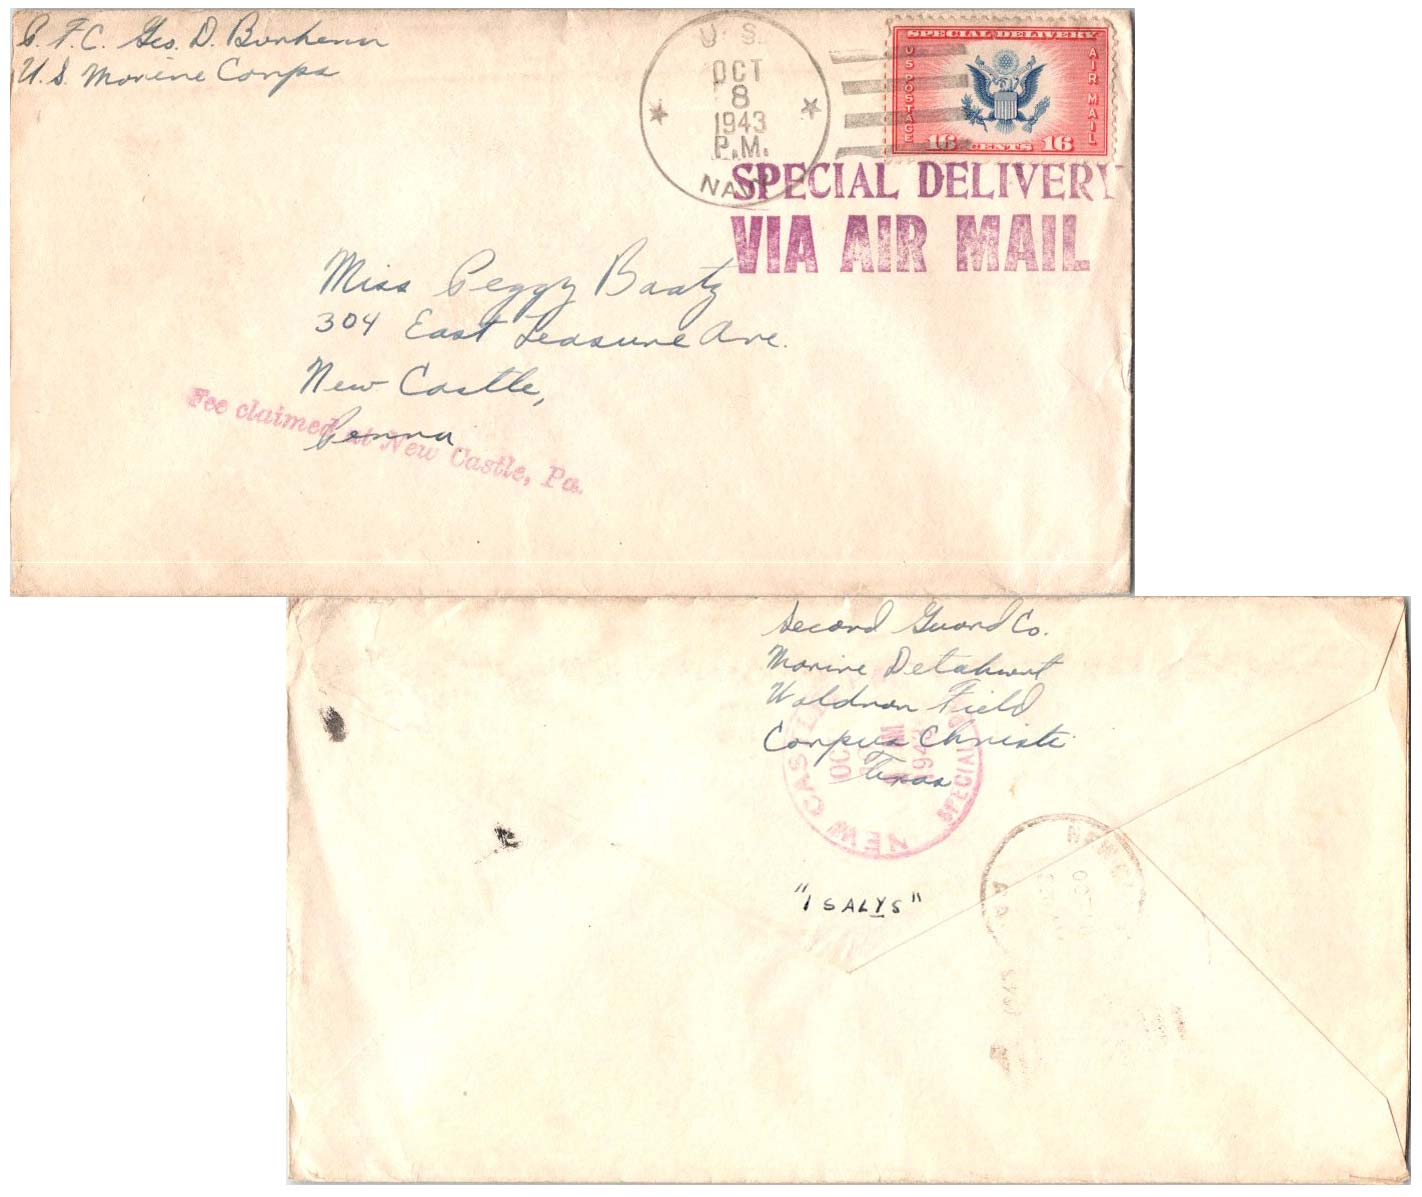 P.F.C. Geo. D. Bonhenn
U.S. Marine Corps
U.S.
OCT
8
1943
P.M.
NAVY
SPECIAL DELIVERY
US POSTAGE
AIR MAIL
16 CENTS 16
SPECIAL DELIVERY
VIA AIR MAIL
Miss Peggy Baatz
304 East Leasure Ave.
New Castle,
Penna
Fee claimed at New Castle, Pa.
Second Guard Co.
Marine Detahment
Waldron Field
Corpus Christi
Texas
NEW CASTLE
OCT
1943
SPECIAL
"ISALYS"
NEW